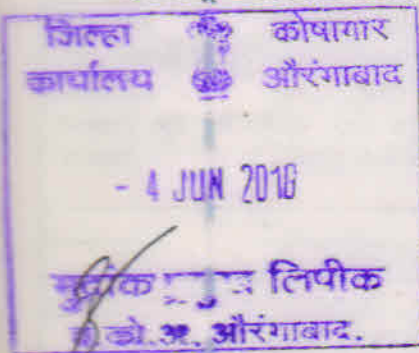 जिल्हा कोषागार
कार्यालय औरंगाबाद
- 4 JUN 2016
मुद्रांक लिपीक
को.अ. औरंगाबाद.